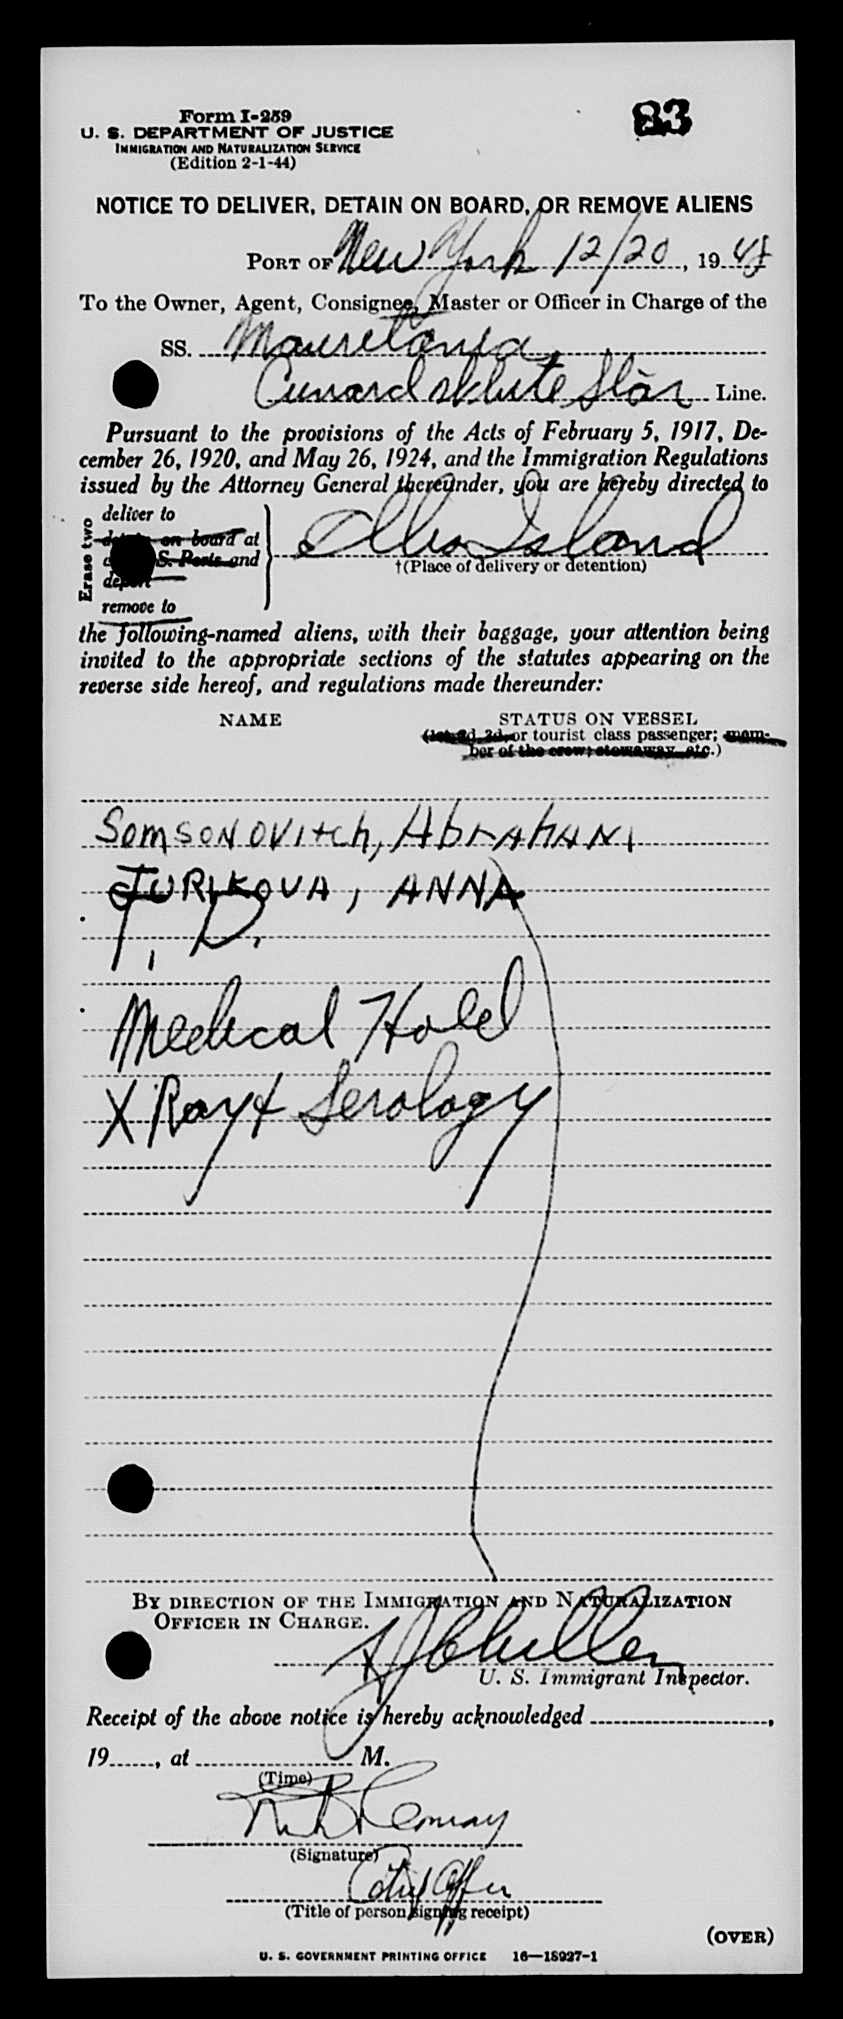 Form I-259
83
U. S. DEPARTMENT OF JUSTICE
IMMIGRATION AND NATURALIZATION SERVICE
(Edition 2-1-44)
NOTICE TO DELIVER, DETAIN ON BOARD, OR REMOVE ALIENS
PORT OF New York 12/20, 1948
To the Owner, Agent, Consignee, Master or Officer in Charge of the
SS. Mauretania
Cunard White Star Line.
Pursuant to the provisions of the Acts of February 5, 1917, De-
cember 26, 1920, and May 26, 1924, and the Immigration Regulations
issued by the Attorney General thereunder, you are hereby directed to
Erase two
deliver to
on board at
S. Ports and
deport
remove to
Ellis Island
†(Place of delivery or detention)
the following-named aliens, with their baggage, your attention being
invited to the appropriate sections of the statutes appearing on the
reverse side hereof, and regulations made thereunder:
NAME STATUS ON VESSEL
(1st, 2d, 3d, or tourist class passenger; mem-
ber of the crew; stowaway, etc.)
Somsonovitch, Abraham
JURIKOVA, ANNA
T. D.
Medical Hold
X Ray & Serology
BY DIRECTION OF THE IMMIGRATION AND NATURALIZATION
OFFICER IN CHARGE.
U. S. Immigrant Inspector.
Receipt of the above notice is hereby acknowledged ,
19 , at M.
(Time)
(Signature)
(Title of person signing receipt)
(OVER)
U. S. GOVERNMENT PRINTING OFFICE 16—18927-1